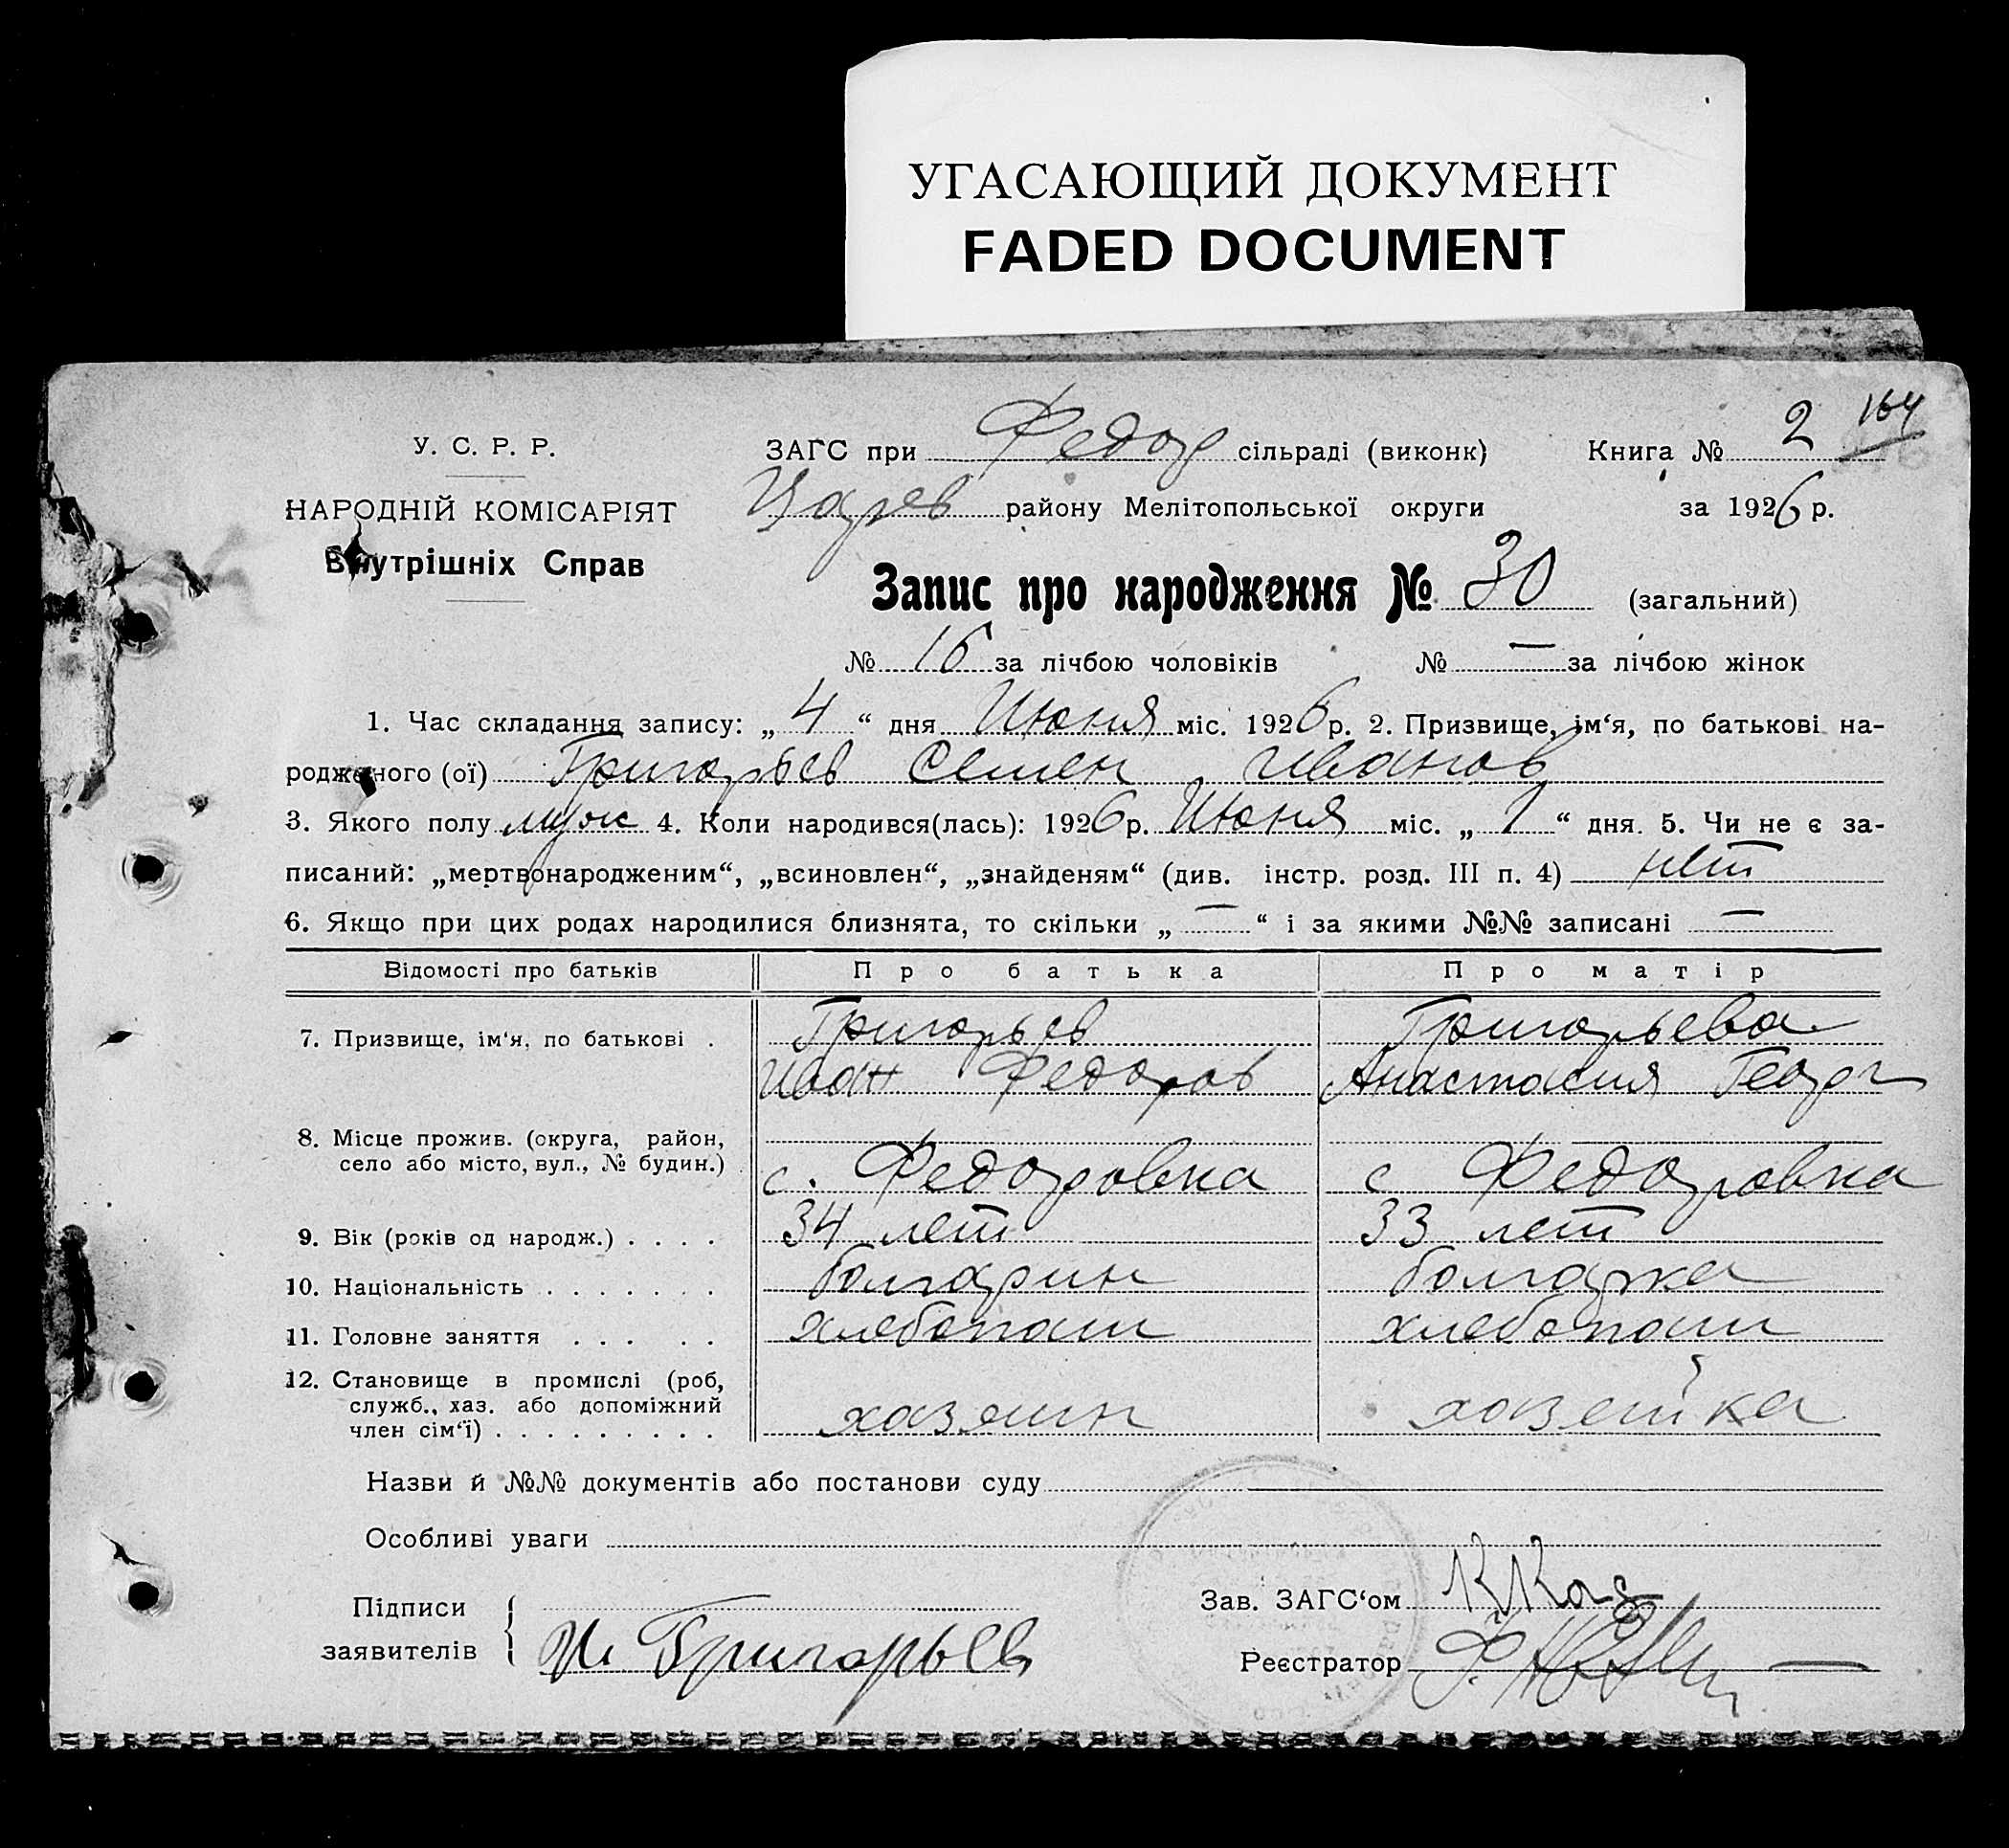 УГАСАЮЩИЙ ДОКУМЕНТ
FADED DOCUMENT
164
У. С. Р. Р.
ЗАГС при Федор сільраді (виконк) Книга № 2
НАРОДНІЙ КОМІСАРІЯТ
Царев району Мелітопольської округи за 1926 р.
Внутрішніх Справ
Запис про народження № 30 (загальний)
№ 16 за лічбою чоловіків № — за лічбою жінок
1. Час складання запису: „ 4 “ дня Июня міс. 1926 р. 2. Призвище, ім‘я, по батькові на-
родженого (ої) Григорьев Семен Иванов
3. Якого полу муж 4. Коли народився(лась): 1926 р. Июня міс. „ 1 “ дня. 5. Чи не є за-
писаний: „мертвонародженим“, „всиновлен“, „знайденям“ (див. інстр. розд. III п. 4) нет
6. Якщо при цих родах народилися близнята, то скільки „ — “ і за якими №№ записані —
Відомості про батьків Про батька Про матір
7. Призвище, ім‘я, по батькові . Григорьев Григорьева
Иван Федоров Анастасия Георг
8. Місце прожив. (округа, район,
село або місто, вул., № будин.) с. Федоровка с Федоровка
9. Вік (років од народж.) . . . . 34 лет 33 лет
10. Національність . . . . . . . болгарин болгарка
11. Головне заняття . . . . . хлебопаш хлебопаш
12. Становище в промислі (роб,
служб., хаз. або допоміжний
член сім‘ї) . . . . . . . . . хазяин хазейка
Назви й №№ документів або постанови суду
Особливі уваги
Підписи
заявителів И Григорьев
Зав. ЗАГС‘ом
Реєстратор